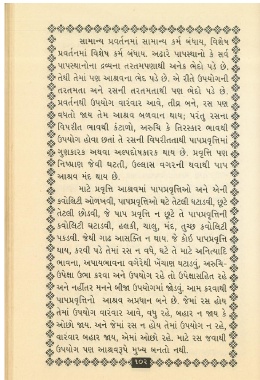 સામાન્ય પ્રવર્તનમાં સામાન્ય કર્મ બંધાય, વિશેષ
પ્રવર્તનમાં વિશેષ કર્મ બંધાય. અઢારે પાપસ્થાનો કે સર્વ
પાપસ્થાનોના દ્રવ્યના તરતમપણાથી અનેક ભેદો પડે છે.
તેથી તેમાં પણ આશ્રવના ભેદ પડે છે. એ રીતે ઉપયોગની
તરતમતા અને રસની તરતમતાથી પણ ભેદો પડે છે.
પ્રવર્તનથી ઉપયોગ વારંવાર આવે, તીવ્ર બને, રસ પણ
વધતો જાય તેમ આશ્રવ બળવાન થાય; પરંતુ રસના
વિપરીત ભાવથી કંટાળો, અરુચિ કે તિરસ્કાર ભાવથી
ઉપયોગ હોવા છતાં તે રસની વિપરીતતાથી પાપપ્રવૃત્તિમાં
ગુણકારક અથવા અલ્પદોષકારક થાય છે. પ્રવૃત્તિ પણ
નિષ્પ્રાણ જેવી થતાં, ઉલ્લાસ વગરની થવાથી પાપ
આશ્રવ મંદ થાય છે.
માટે પ્રવૃત્તિ આશ્રવમાં પાપપ્રવૃત્તિઓ અને એની
ક્વોલિટી ઓળખવી, પાપપ્રવૃત્તિઓ ઘટે તેટલી ઘટાડવી, છૂટે
તેટલી છોડવી, જે પાપ પ્રવૃત્તિ ન છૂટે તે પાપપ્રવૃત્તિની
ક્વોલિટી ઘટાડવી, હલકી, ચાલુ, મંદ, તુચ્છ ક્વોલિટી
પકડવી. જેથી ગાઢ આસક્તિ ન થાય. જે કોઈ પાપપ્રવૃત્તિ
થાય, કરવી પડે તેમાં રસ ન વધે, ઘટે તે માટે અનિત્યાદિ
ભાવના, અપાયભાવના વગેરેથી ખેંચાણ ઘટાડવું. અરુચિ-
ઉપેક્ષા ઉભા કરવા અને ઉપયોગ રહે તો ઉપેક્ષાસહિત રહે
અને નહીંતર મનને બીજા ઉપયોગમાં જોડવું. આમ કરવાથી
પાપપ્રવૃત્તિનો આશ્રવ અપ્રધાન બને છે. જેમાં રસ હોય
તેમાં ઉપયોગ વારંવાર આવે, વધુ રહે, બહાર ન જાય કે
ઓછો જાય. અને જેમાં રસ ન હોય તેમાં ઉપયોગ ન રહે,
વારંવાર બહાર જાય, એમાં ઓછો રહે. માટે રસ જવાથી
ઉપયોગ પણ આશ્રવરૂપે મુખ્ય બનતો નથી.
૧૦૨